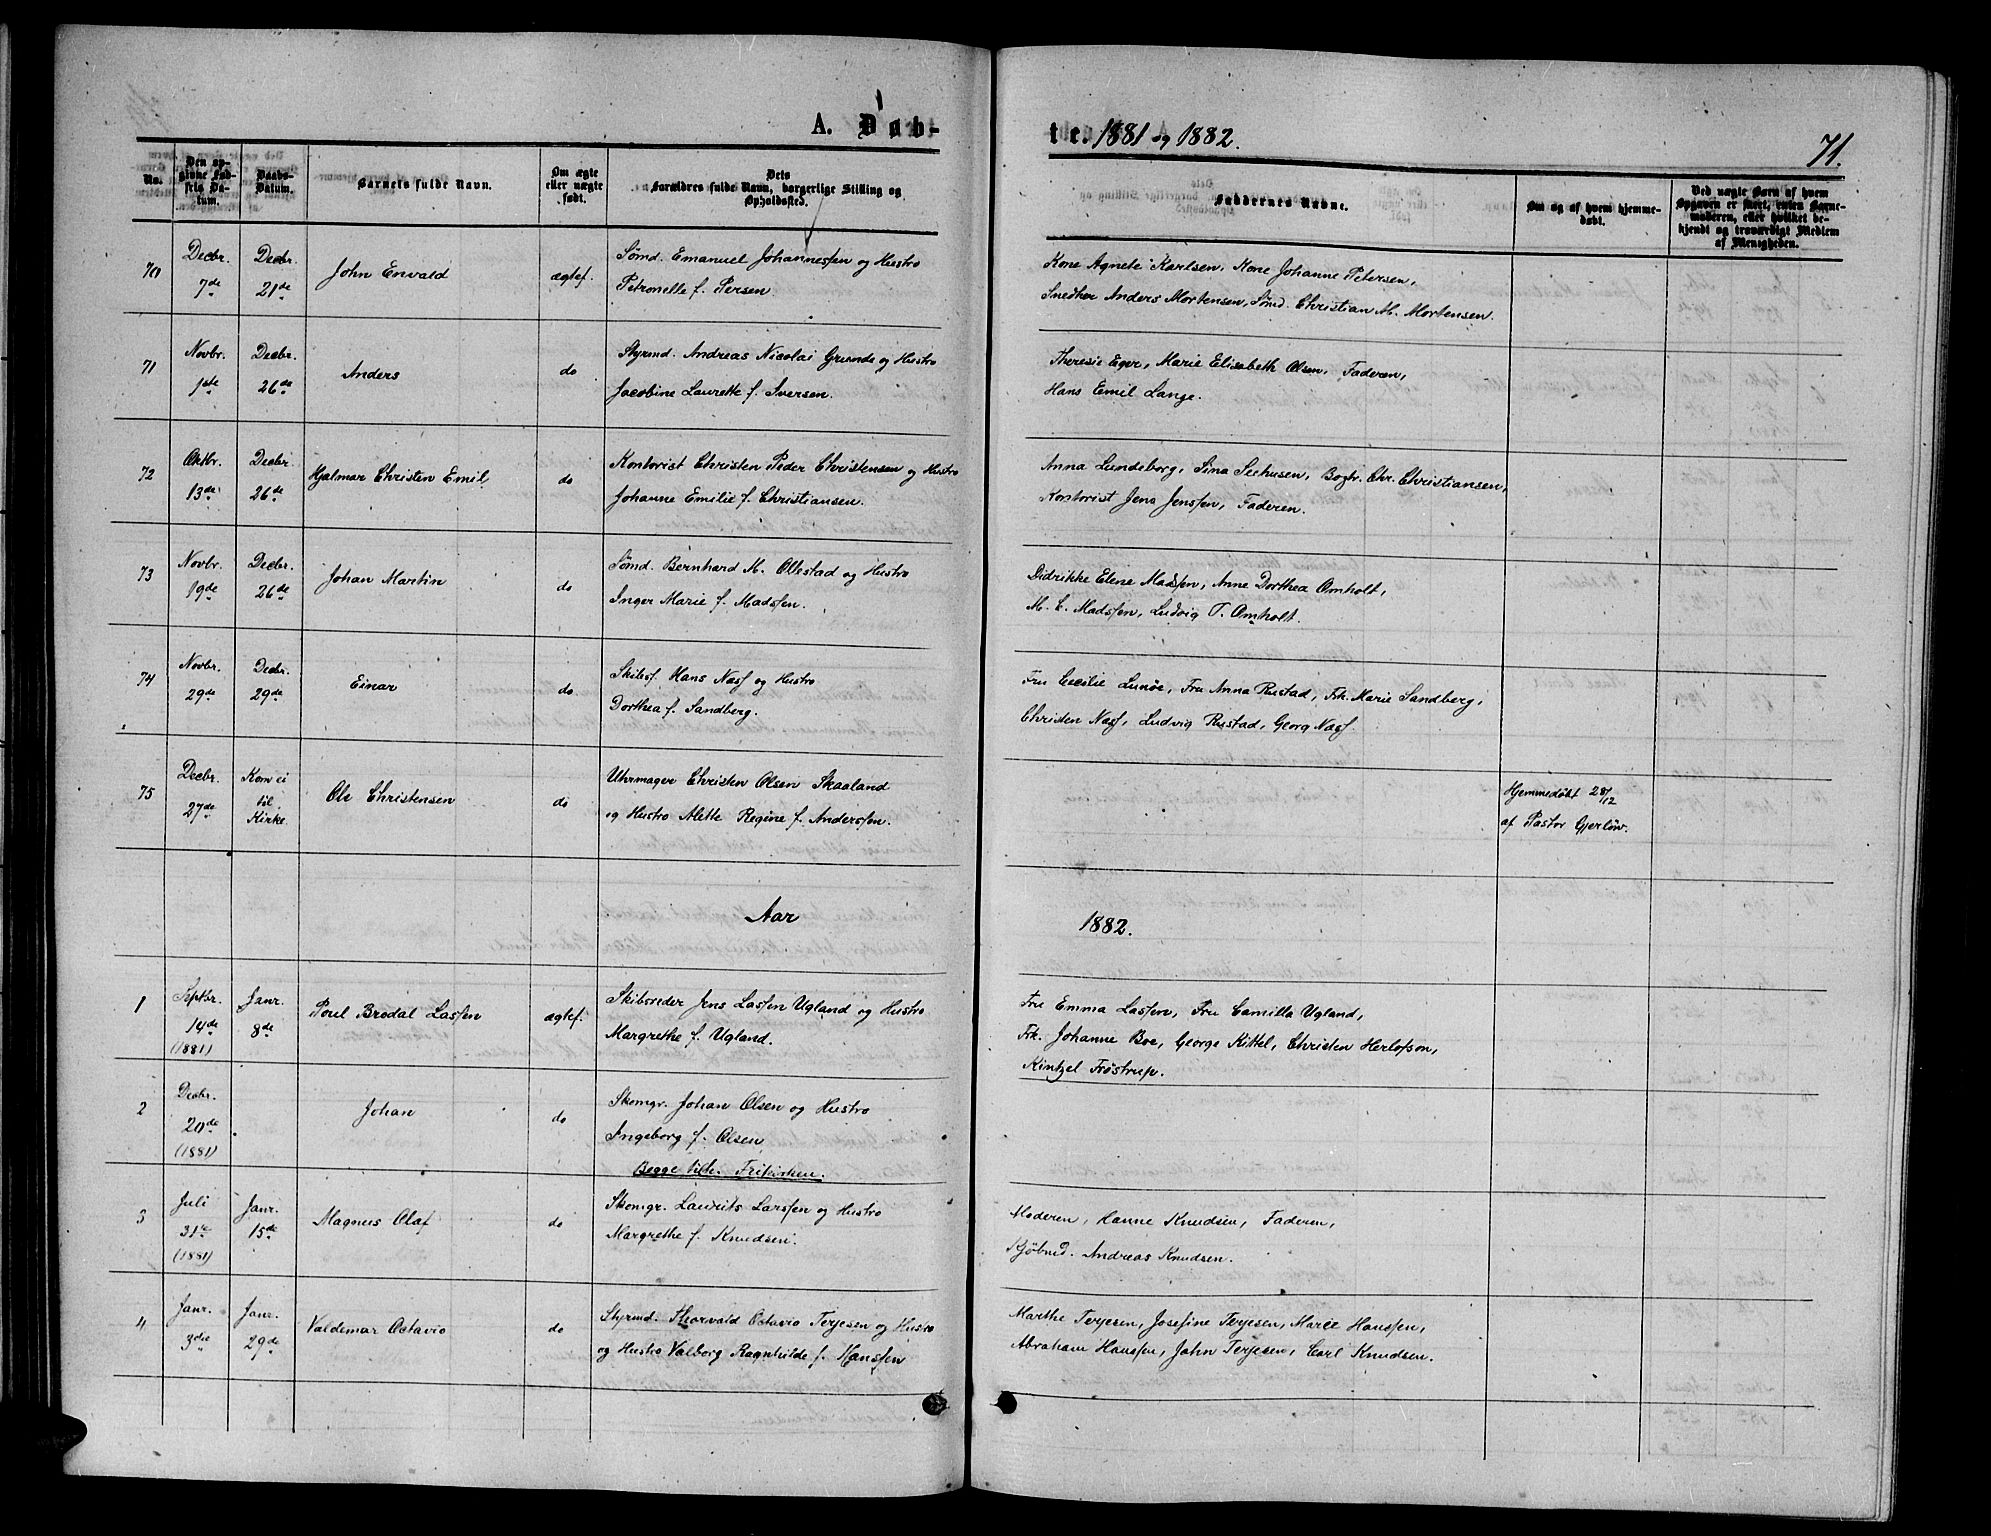 A. Døb-
te. 1881 og 1882.
71.
No.
Den op-
givne Fød-
sels Da-
tum.
Daabs-
Datum.
Barnets fulde Navn.
Om ægte
eller uægte
født.
Dets
Forældres fulde Navn, borgerlige Stilling og
Opholdssted.
Faddernes Navne.
Om og af hvem hjemme-
døbt.
Ved uægte Børn af hvem
Opgaven er skeet, enten Barne-
moderen, eller hvilket be-
kjendt og troværdigt Medlem
af Menigheden.
70
Decbr.
7de
Decbr.
21de
John Envald
ægtef.
Sømd. Emanuel Johannessen og Hustro
Petronelle f. Persen
Kone Agnete Karlsen, Kone Johanne Petersen,
Snedker Anders Mortensen, Sømd. Christian M. Mortensen.
71
Novbr.
1ste
Decbr.
26de
Anders
do
Styrmd. Andreas Nicolai Grunde og Hustro
Jacobine Laurette f. Iversen.
Theresie Eger, Marie Elisabeth Olsen, Faderen,
Hans Emil Lange.
72
Oktbr.
13de
Decbr.
26de
Hjalmar Christen Emil
do
Kontorist Christen Peder Christensen og Hustro
Johanne Emilie f. Christiansen.
Anna Lundeborg, Sina Seehusen, Bogtr. Chr. Christiansen,
Kontorist Jens Jenssen, Faderen.
73
Novbr.
19de
Decbr.
26de
Johan Martin
do
Sømd. Bernhard M. Ollestad og Hustro
Inger Marie f. Madssen.
Didrikke Elene Madssen, Anne Dorthea Omholt,
M. E. Madssen, Ludvig T. Omholt.
74
Novbr.
29de
Decbr.
29de
Einar
do
Skibsf. Hans Næss og Hustro
Dorthea f. Sandberg.
Fru Cecilie Lunøe, Fru Anna Rustad, Frk. Marie Sandberg,
Christen Næss, Ludvig Rustad, Georg Næss.
75
Decbr.
27de
Kom ei
til
Kirke.
Ole Christensen
do
Uhrmager Christen Olsen Skaaland
og Hustro Alette Regine f. Anderssen.
Hjemmedøbt 28/12
af Pastor Gjerløw.
Aar
1882.
1
Septbr.
14de
(1881)
Janr.
8de
Poul Brodal Lassen
ægtef.
Skibsreder Jens Lassen Ugland og Hustro
Margrethe f. Ugland.
Fru Emma Lassen, Fru Camilla Ugland,
Frk. Johanne Boe, George Kittel, Christen Herlofson,
Kintzel Frøstrup.
2
Decbr.
20de
(1881)
Johan
do
Skomgr. Johan Olsen og Hustro
Ingeborg f. Olsen
Begge tilh. Frikirken.
3
Juli
31te
(1881)
Janr.
15de
Magnus Olaf
do
Skomgr. Laurits Larssen og Hustro
Margrethe f. Knudsen.
Moderen, Hanne Knudsen, Faderen,
Kjøbmd. Andreas Knudsen.
4
Janr.
3die
Janr.
29de
Valdemar Octavio
do
Styrmd. Thorvald Octavio Terjesen og Hustro
og Hustro Valborg Ragnhilde f. Hanssen
Marthe Terjesen, Josefine Terjesen, Marie Hanssen,
Abraham Hanssen, John Terjesen, Carl Knudsen.